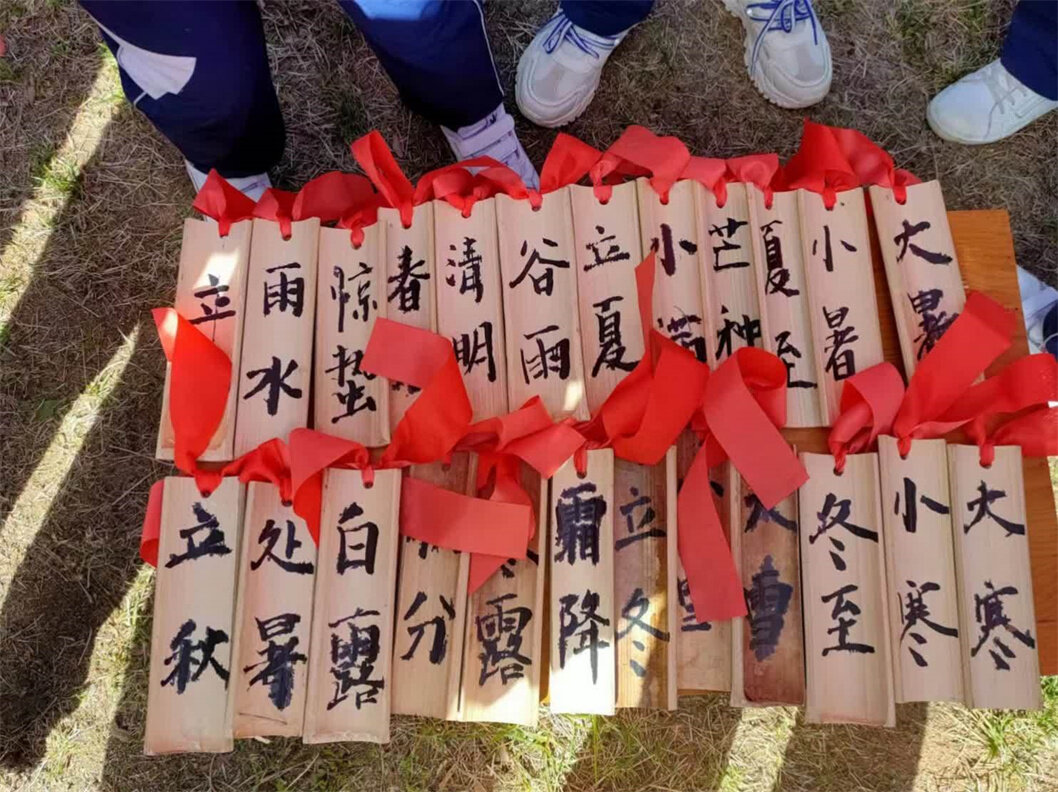 立
雨水
惊蛰
春
清明
谷雨
立夏
小满
芒种
夏至
小暑
大暑
立秋
处暑
白露
分
露
霜降
立冬
雪
大雪
冬至
小寒
大寒